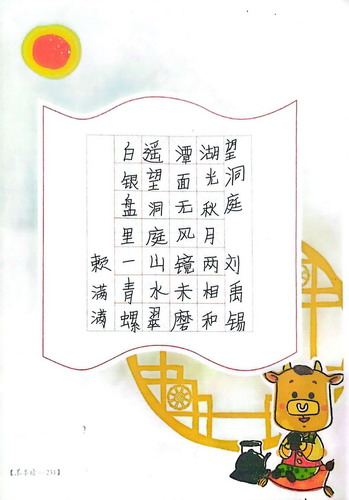 望洞庭 刘禹锡
湖光秋月两相和
潭面无风镜未磨
遥望洞庭山水翠
白银盘里一青螺
满满